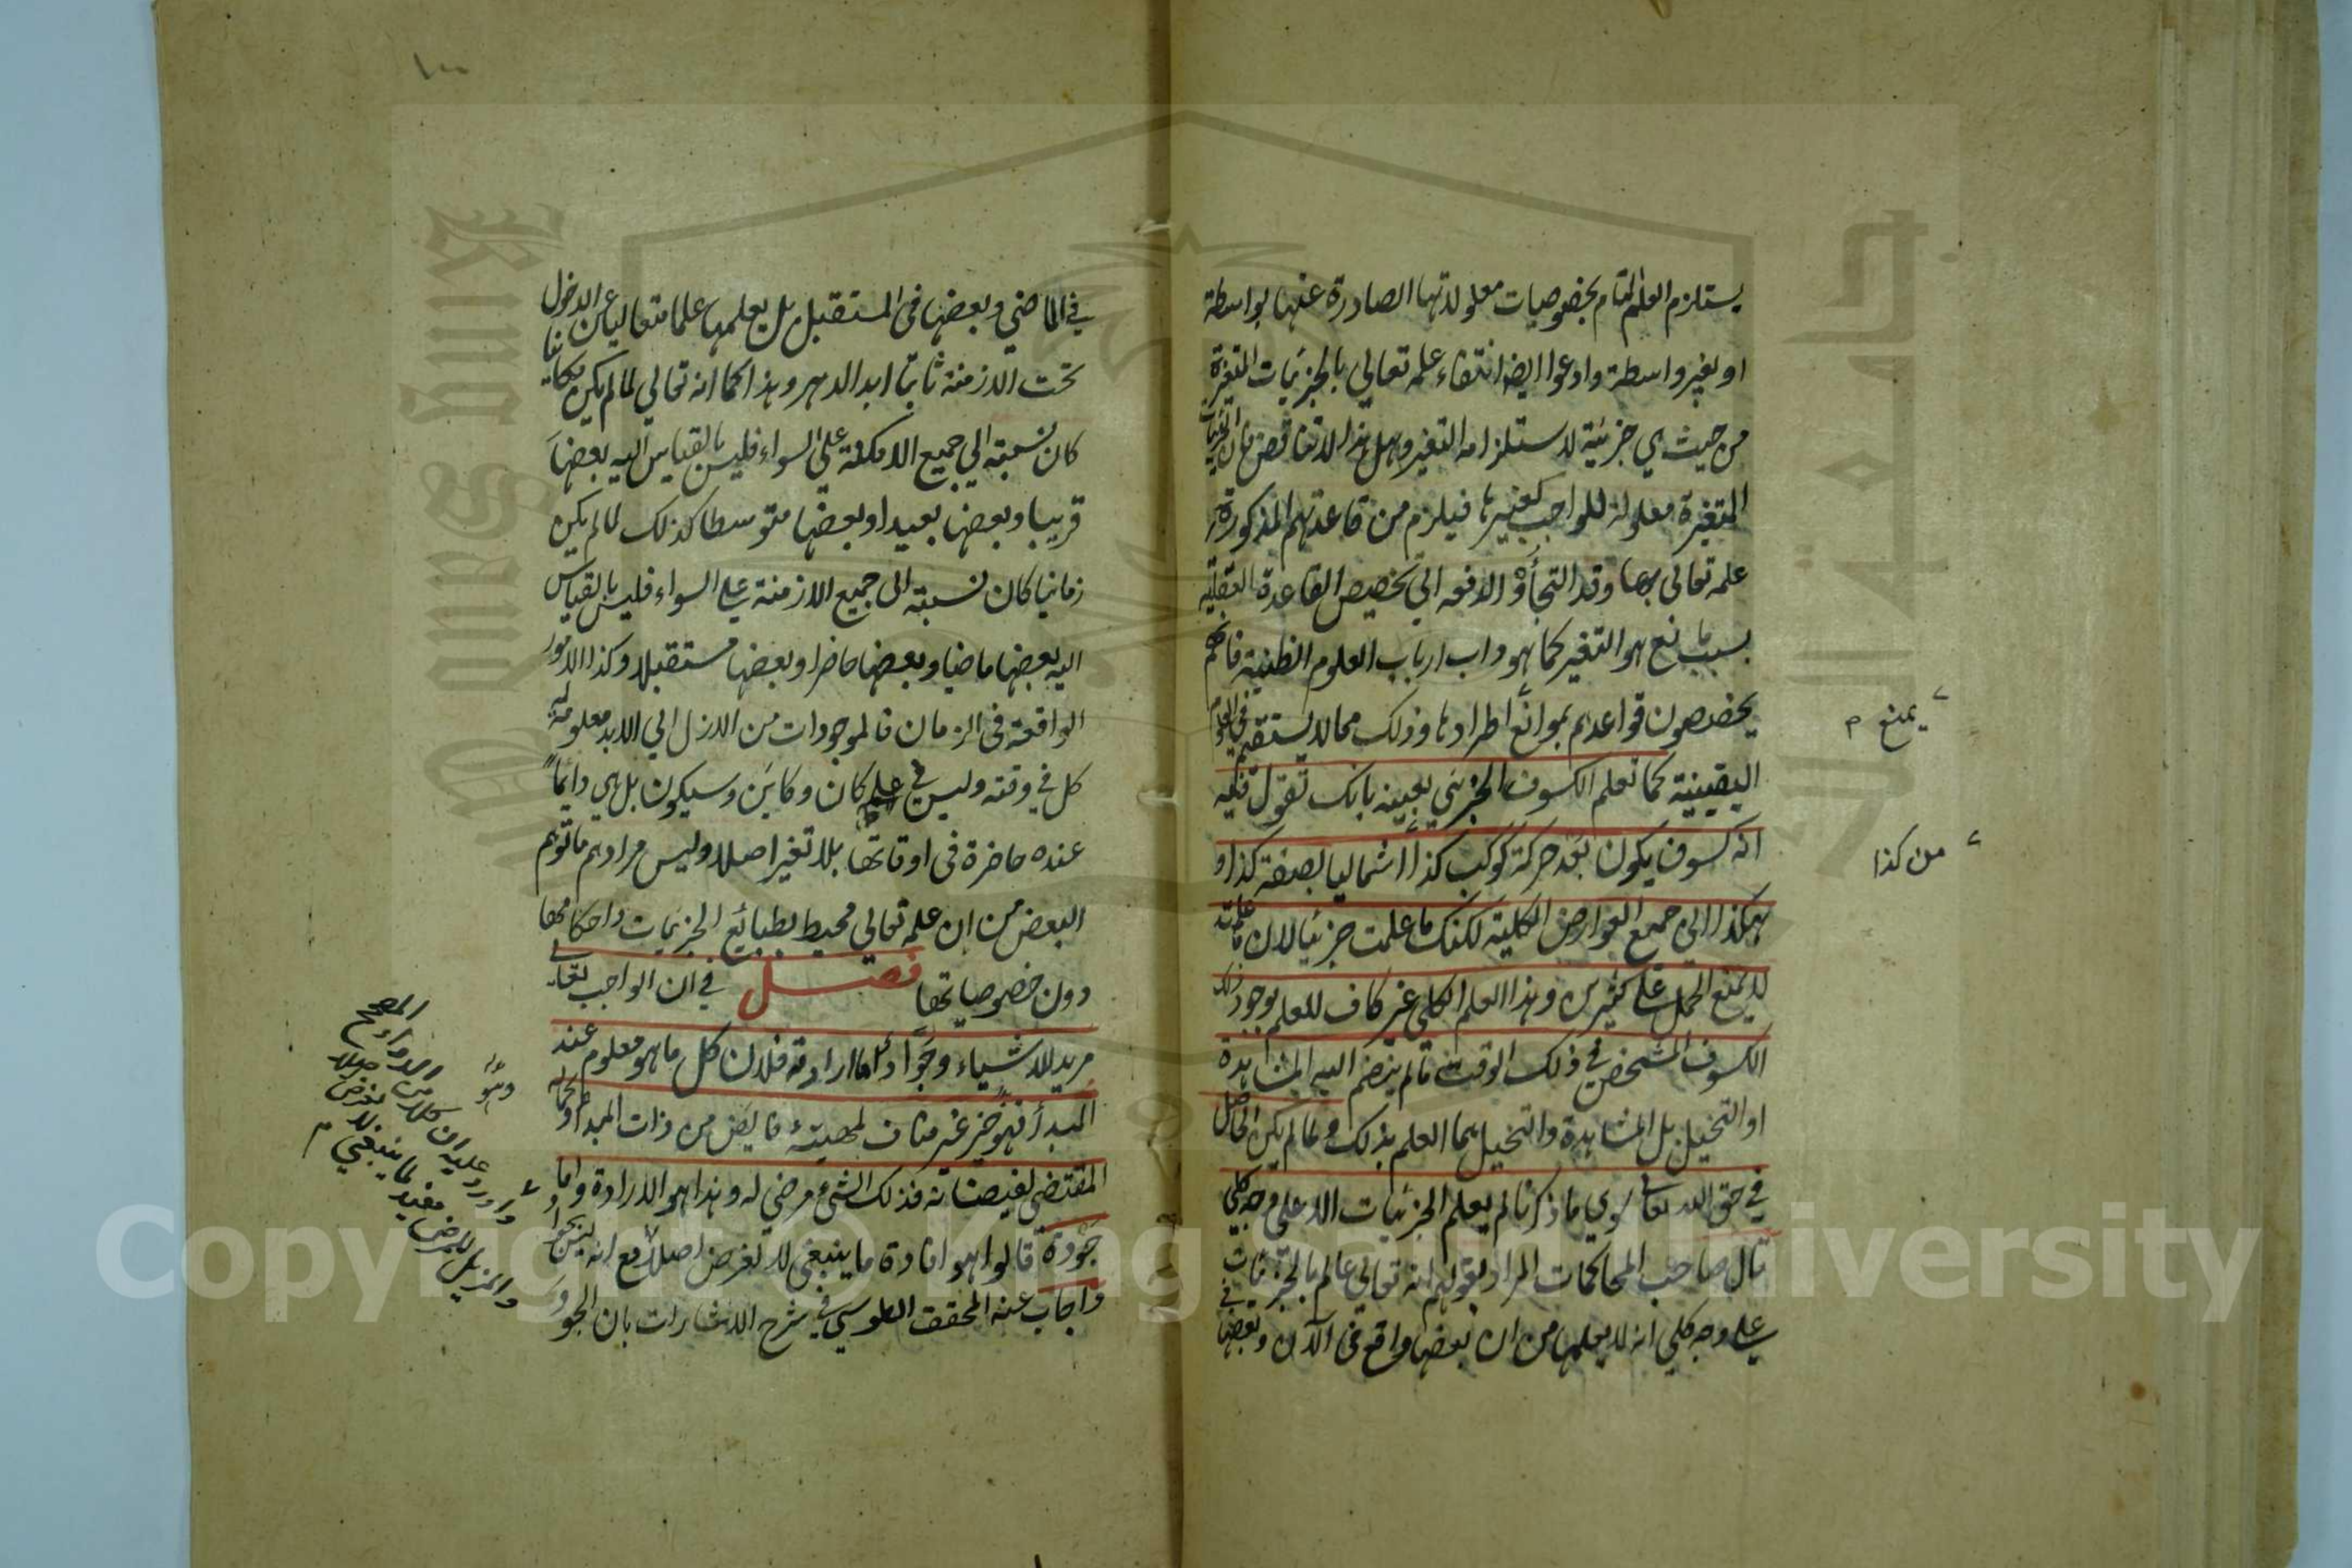 يستلزم العلم التام بخصوصيات معلولاتها الصادرة عنها بواسطة
او بغير واسطة وادعوا ايضا انتفاء علمه تعالى بالجزئيات المتغيرة
من حيث هي جزئية لاستلزامه التغير وهل هذا الا تناقض فان الجزئيات
المتغيرة معلولة للواجب كغيرها فيلزم من قاعدتهم المذكورة
علمه تعالى بها وقد التجأوا لدفعه الى تخصيص القاعدة العقلية
بسبب مانع هو التغير كما هو داب ارباب العلوم الظنية فانهم
يخصصون قواعدهم بموانع اطرادها وذلك مما لا يستقيم في العلوم
اليقينية كما تعلم الكسوف الجزئي بعينه بانك تقول فيه
انه كسوف يكون بعد حركة كوكب كذا شماليا بصفة كذا و
هكذا الى جميع العوارض الكلية لكنك ما علمت جزئيا لان ما علمته
لا يمنع الحمل على كثيرين وهذا العلم الكلي غير كاف للعلم بوجود ذلك
الكسوف المشخص في ذلك الوقت ما لم ينضم اليه المشاهدة
او التخيل بل المشاهدة والتخيل هما العلم بذلك ولما لم يكن الحاصل
في حق الله تعالى سوى ما ذكرنا لم يعلم الجزئيات الا على وجه كلي
قال صاحب المحاكمات المراد بقولهم انه تعالى عالم بالجزئيات
على وجه كلي انه لا يعلمها من ان بعضها واقع في الآن وبعضها في
يمنع م
من كذا
١٠٠
في الماضي وبعضها في المستقبل بل يعلمها علما متعاليا عن الدخول
تحت الازمنة ثابتا ابد الدهر وهذا كما انه تعالى لما لم يكن مكانيا
كان نسبته الى جميع الامكنة على السواء فليس بالقياس اليه بعضها
قريبا وبعضها بعيدا وبعضها متوسطا كذلك لما لم يكن
زمانيا كان نسبته الى جميع الازمنة على السواء فليس بالقياس
اليه بعضها ماضيا وبعضها حاضرا وبعضها مستقبلا وكذا الامور
الواقعة في الزمان فالموجودات من الازل الى الابد معلومة له
كل في وقته وليس في علمه كان وكائن وسيكون بل هي دائما
عنده حاضرة في اوقاتها بلا تغير اصلا وليس مرادهم ما توهم
البعض من ان علمه تعالى محيط بطبائع الجزئيات واحكامها
دون خصوصياتها فصل في ان الواجب تعالى
مريد للاشياء وجواد أما ارادته فلان كل ما هو معلوم عند
المبدأ فهو خير غير مناف لمهيته فايض من ذات المبدأ وكماله
المقتضي لفيضانه فذلك الشيء مرضي له وهذا هو الارادة واما
جودة قالوا هو افادة ما ينبغي لا لغرض اصلا مع انه
واجاب عنه المحقق الطوسي في شرح الاشارات بان الجود
وهو
واورد عليه ان كلا من الدواء المصحح
لا لغرض
والمزيل للمرض مفيد لما ينبغي م
Copyright © King Saud University